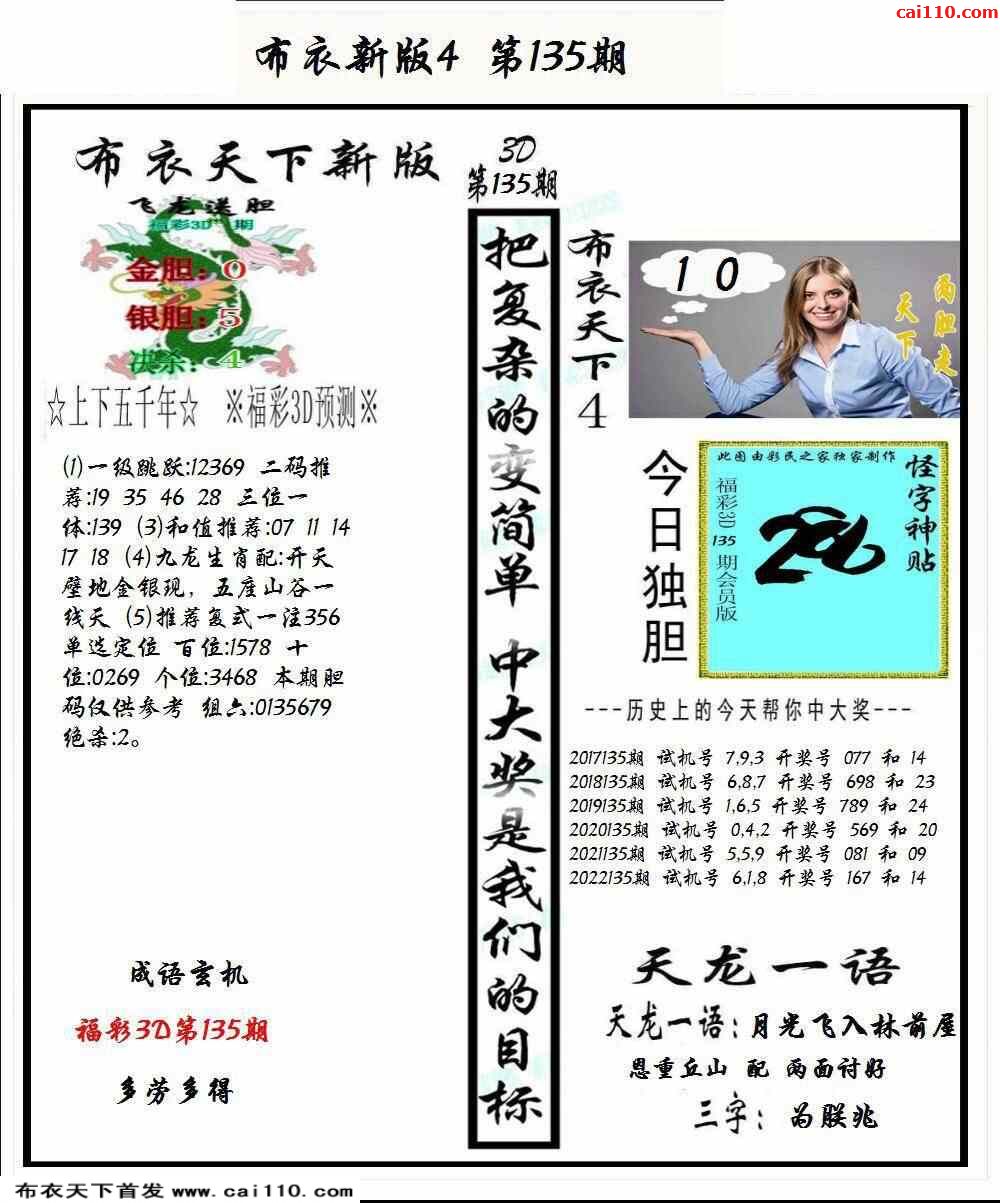 cai110.com
布衣新版4 第135期
布衣天下新版
飞龙送胆
福彩3D 期
金胆：0
银胆：5
决杀：4
☆上下五千年☆ ※福彩3D预测※
(1)一级跳跃:12369 二码推
荐:19 35 46 28 三位一
体:139 (3)和值推荐:07 11 14
17 18 (4)九龙生肖配:开天
壁地金银现，五度山谷一
线天 (5)推荐复式一注356
单选定位 百位:1578 十
位:0269 个位:3468 本期胆
码仅供参考 组六:0135679
绝杀:2。
成语玄机
福彩3D第135期
多劳多得
3D
第135期
把复杂的变简单 中大奖是我们的目标
布衣天下4
10
两胆走
天下
今日独胆
此图由彩民之家独家制作
怪字神贴
福彩3D 135 期会员版
---历史上的今天帮你中大奖---
2017135期 试机号 7,9,3 开奖号 077 和 14
2018135期 试机号 6,8,7 开奖号 698 和 23
2019135期 试机号 1,6,5 开奖号 789 和 24
2020135期 试机号 0,4,2 开奖号 569 和 20
2021135期 试机号 5,5,9 开奖号 081 和 09
2022135期 试机号 6,1,8 开奖号 167 和 14
天龙一语
天龙一语:月光飞入林前屋
恩重丘山 配 两面讨好
三字： 为朕兆
布衣天下首发 www.cai110.com